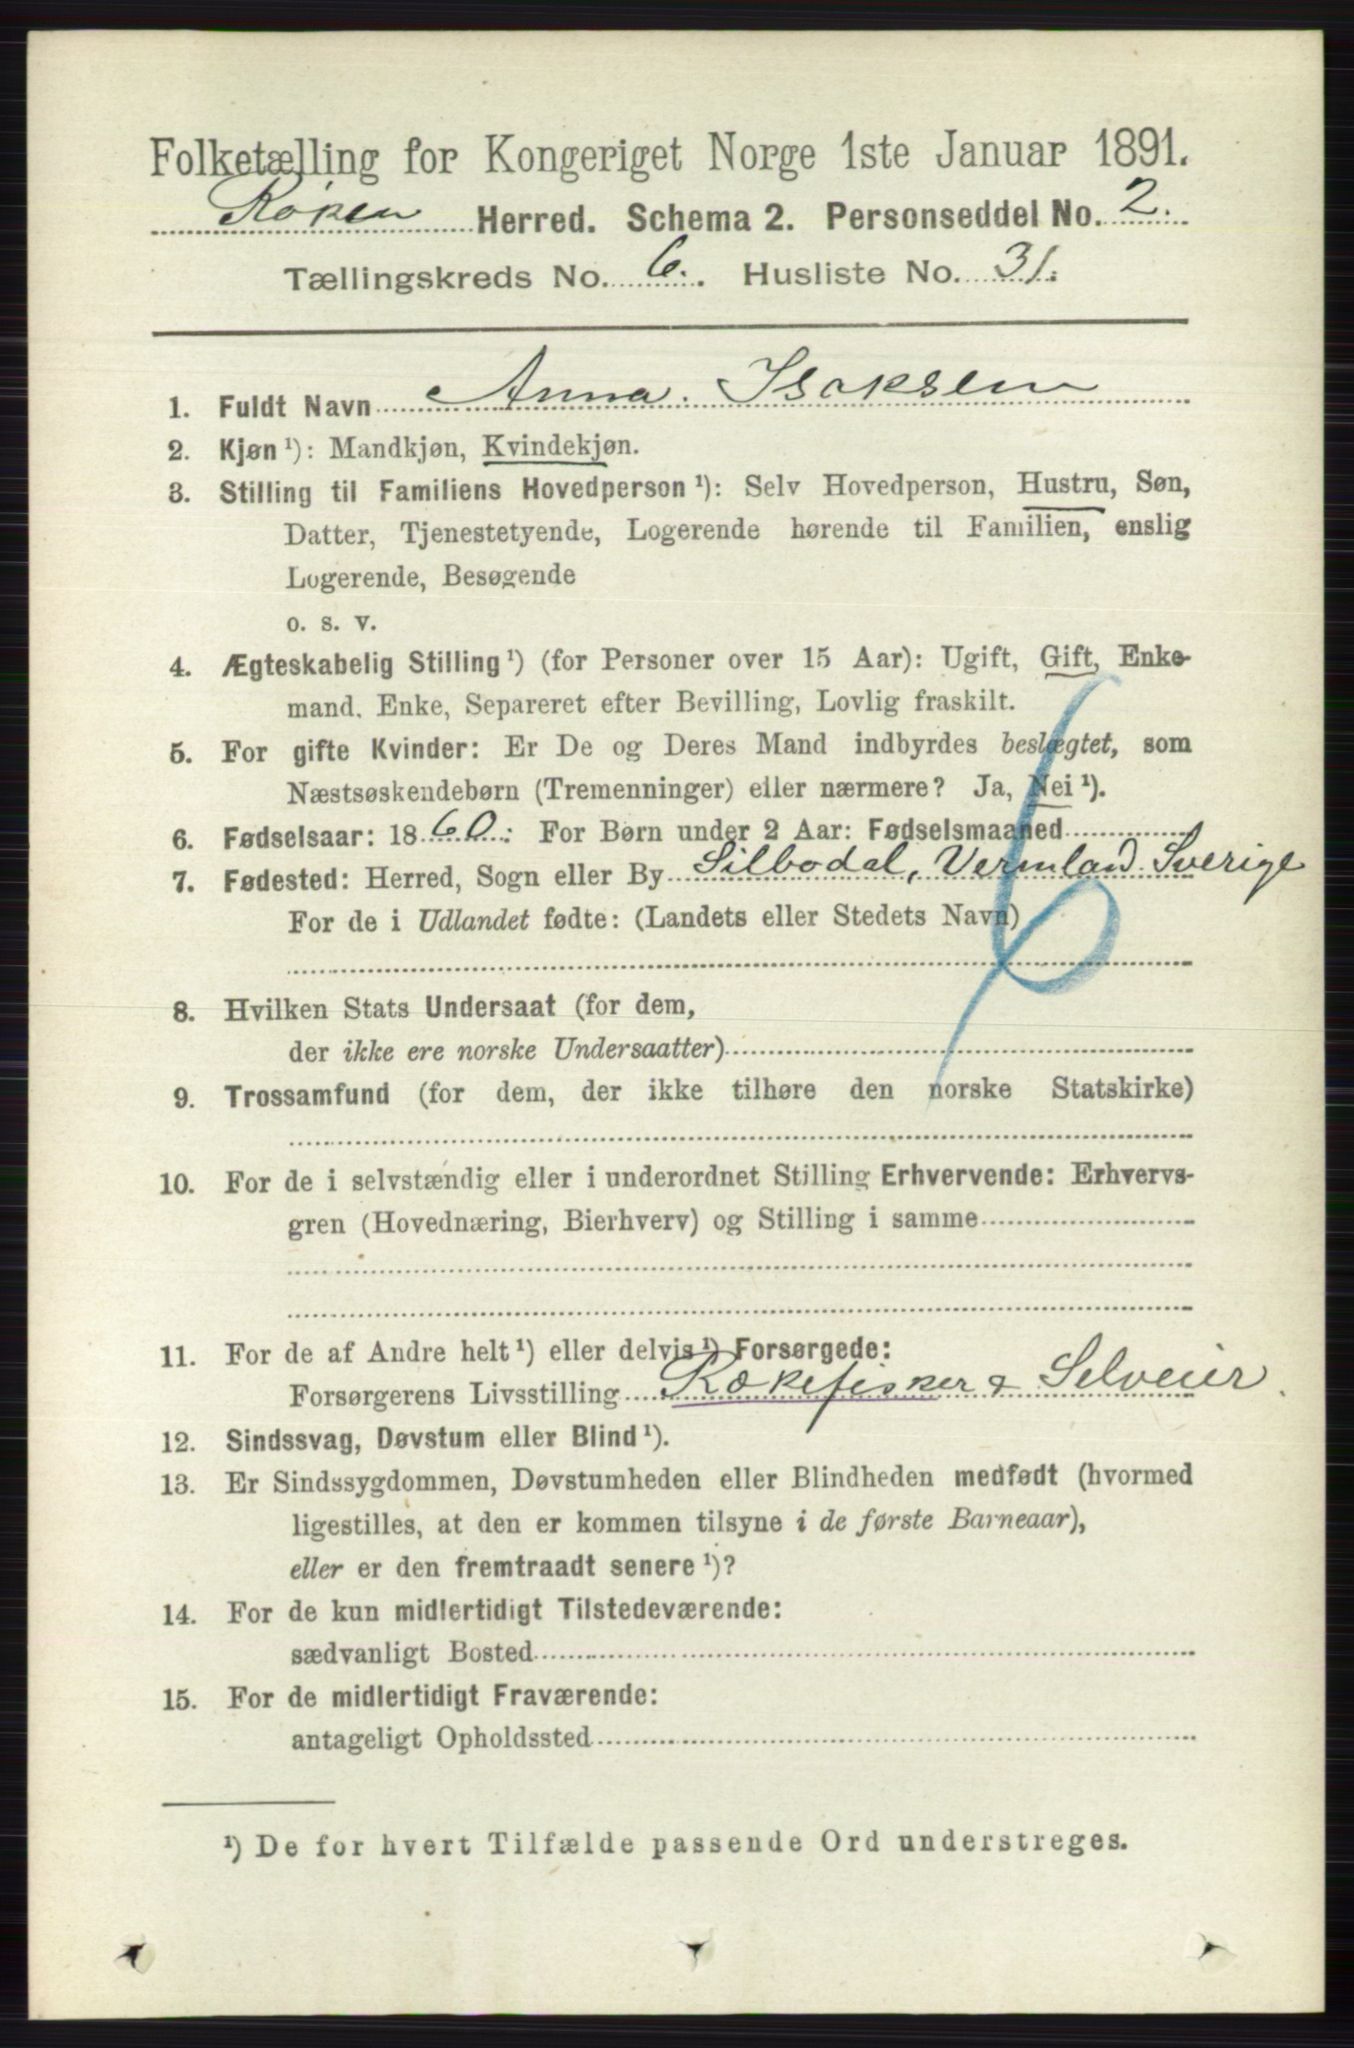 Folketælling for Kongeriget Norge 1ste Januar 1891.
Røken Herred. Schema 2. Personseddel No. 2.
Tællingskreds No. 6. Husliste No. 31.
1. Fuldt Navn Anna Isaksen
2. Kjøn ¹): Mandkjøn, Kvindekjøn.
3. Stilling til Familiens Hovedperson ¹): Selv Hovedperson, Hustru, Søn,
Datter, Tjenestetyende, Logerende hørende til Familien, enslig
Logerende, Besøgende
o. s. v.
4. Ægteskabelig Stilling ¹) (for Personer over 15 Aar): Ugift, Gift, Enke-
mand, Enke, Separeret efter Bevilling, Lovlig fraskilt.
5. For gifte Kvinder: Er De og Deres Mand indbyrdes beslægtet, som
Næstsøskendebørn (Tremenninger) eller nærmere? Ja, Nei ¹).
6. Fødselsaar: 1860: For Børn under 2 Aar: Fødselsmaaned
7. Fødested: Herred, Sogn eller By Silbodal, Vermland Sverige
For de i Udlandet fødte: (Landets eller Stedets Navn)
8. Hvilken Stats Undersaat (for dem,
der ikke ere norske Undersaatter)
9. Trossamfund (for dem, der ikke tilhøre den norske Statskirke)
10. For de i selvstændig eller i underordnet Stilling Erhvervende: Erhvervs-
gren (Hovednæring, Bierhverv) og Stilling i samme
11. For de af Andre helt ¹) eller delvis ¹) Forsørgede:
Forsørgerens Livsstilling Rækefisker & Selveier.
12. Sindssvag, Døvstum eller Blind ¹).
13. Er Sindssygdommen, Døvstumheden eller Blindheden medfødt (hvormed
ligestilles, at den er kommen tilsyne i de første Barneaar),
eller er den fremtraadt senere ¹)?
14. For de kun midlertidigt Tilstedeværende:
sædvanligt Bosted
15. For de midlertidigt Fraværende:
antageligt Opholdssted
¹) De for hvert Tilfælde passende Ord understreges.